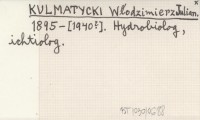 KULMATYCKI Włodzimierz Julian.
1895-[1940?]. Hydrobiolog,
ichtiolog.